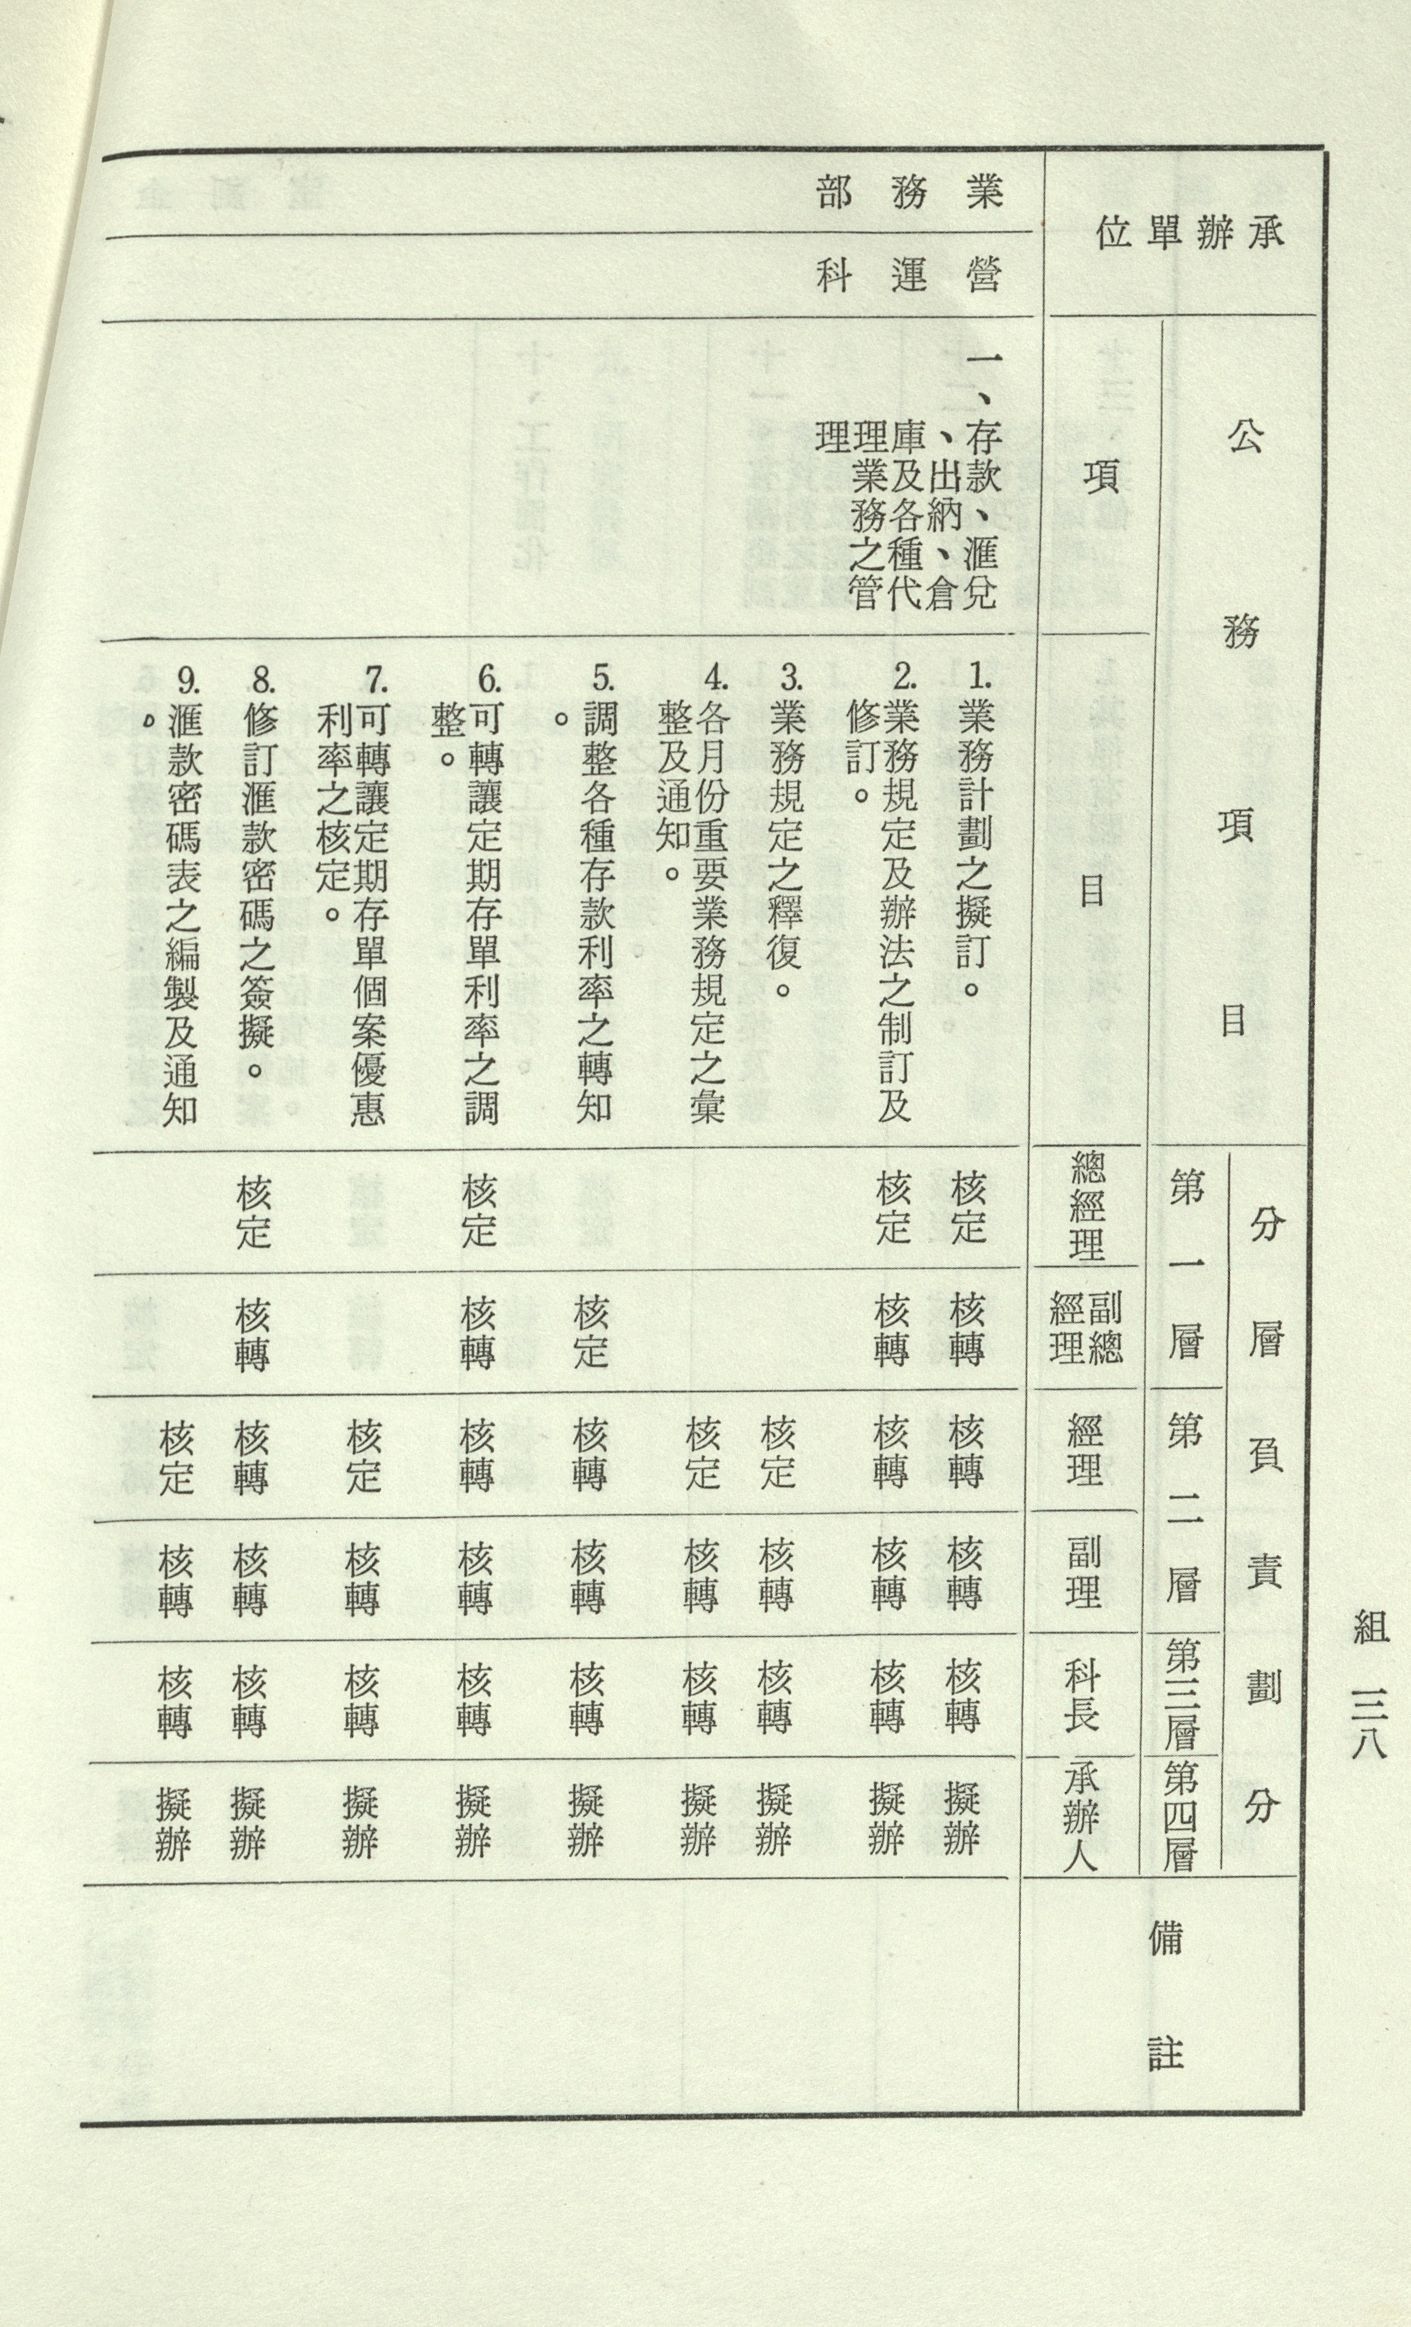 組 三八
承辦單位
公務項目
項
目
分層負責劃分
第一層
第二層
第三層
第四層
總經理
副總
經理
經理
副理
科長
承辦人
備註
業務部
營運科
一、存款、滙兌
、出納、倉
庫及各種代
理業務之管
理
1. 業務計劃之擬訂。
核定
核轉
核轉
核轉
核轉
擬辦
2. 業務規定及辦法之制訂及
修訂。
核定
核轉
核轉
核轉
核轉
擬辦
3. 業務規定之釋復。
核定
核轉
核轉
擬辦
4. 各月份重要業務規定之彙
整及通知。
核定
核轉
核轉
擬辦
5. 調整各種存款利率之轉知
。
核定
核轉
核轉
核轉
擬辦
6. 可轉讓定期存單利率之調
整。
核定
核轉
核轉
核轉
核轉
擬辦
7. 可轉讓定期存單個案優惠
利率之核定。
核定
核轉
核轉
擬辦
8. 修訂滙款密碼之簽擬。
核定
核轉
核轉
核轉
核轉
擬辦
9. 滙款密碼表之編製及通知
。
核定
核轉
核轉
擬辦